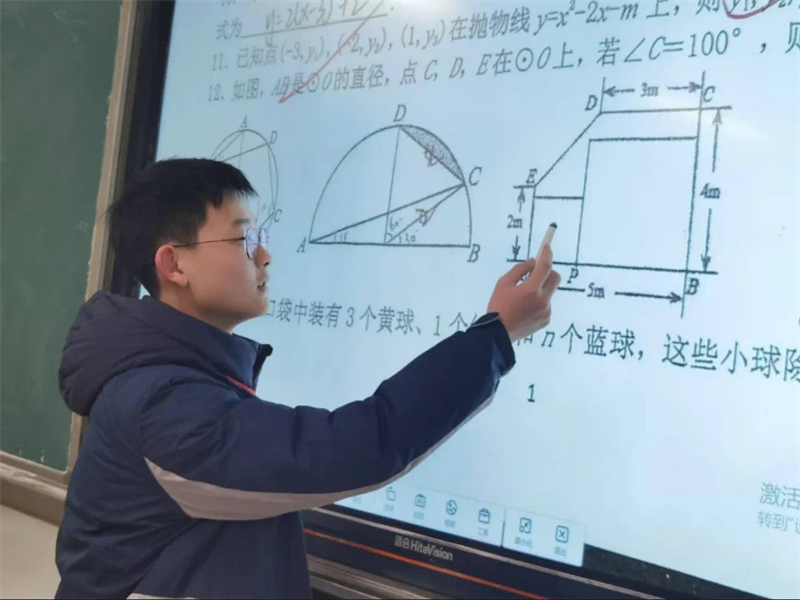 式为 y=2(x-3)+2
11. 已知点(-3,y₁), (-2,y₂), (1,y₃)在抛物线 y=x²-2x-m 上，则
12. 如图，AB是⊙O的直径，点 C，D，E在⊙O上，若∠C=100°，则
A D C
D C A B 15 60° 20°
D 3m C E 2m 4m P B 5m
口袋中装有3个黄球、1个 和 n个蓝球，这些小球除
1
激活
转到"设
工具 最小化 退出
HiteVision